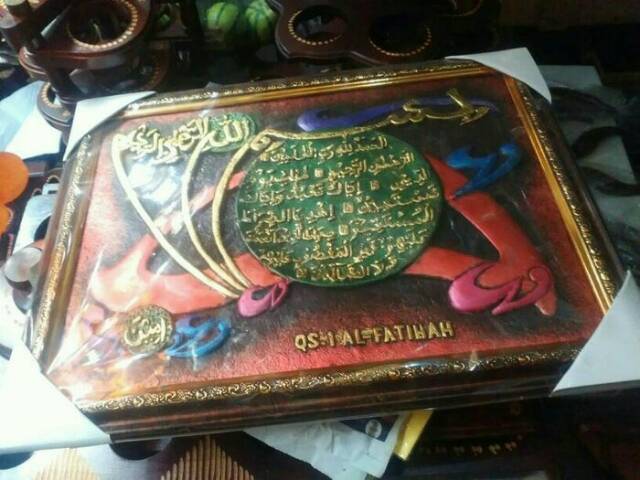 بسم
الله الرحمن الرحيم
الحمد لله رب العلمين
الرحمن الرحيم ملك يوم
الدين إياك نعبد وإياك
نستعين اهدنا الصراط
المستقيم صراط الذين أنعمت
عليهم غير المغضوب عليهم
ولا الضالين
آمين
QS-1 AL-FATIHAH